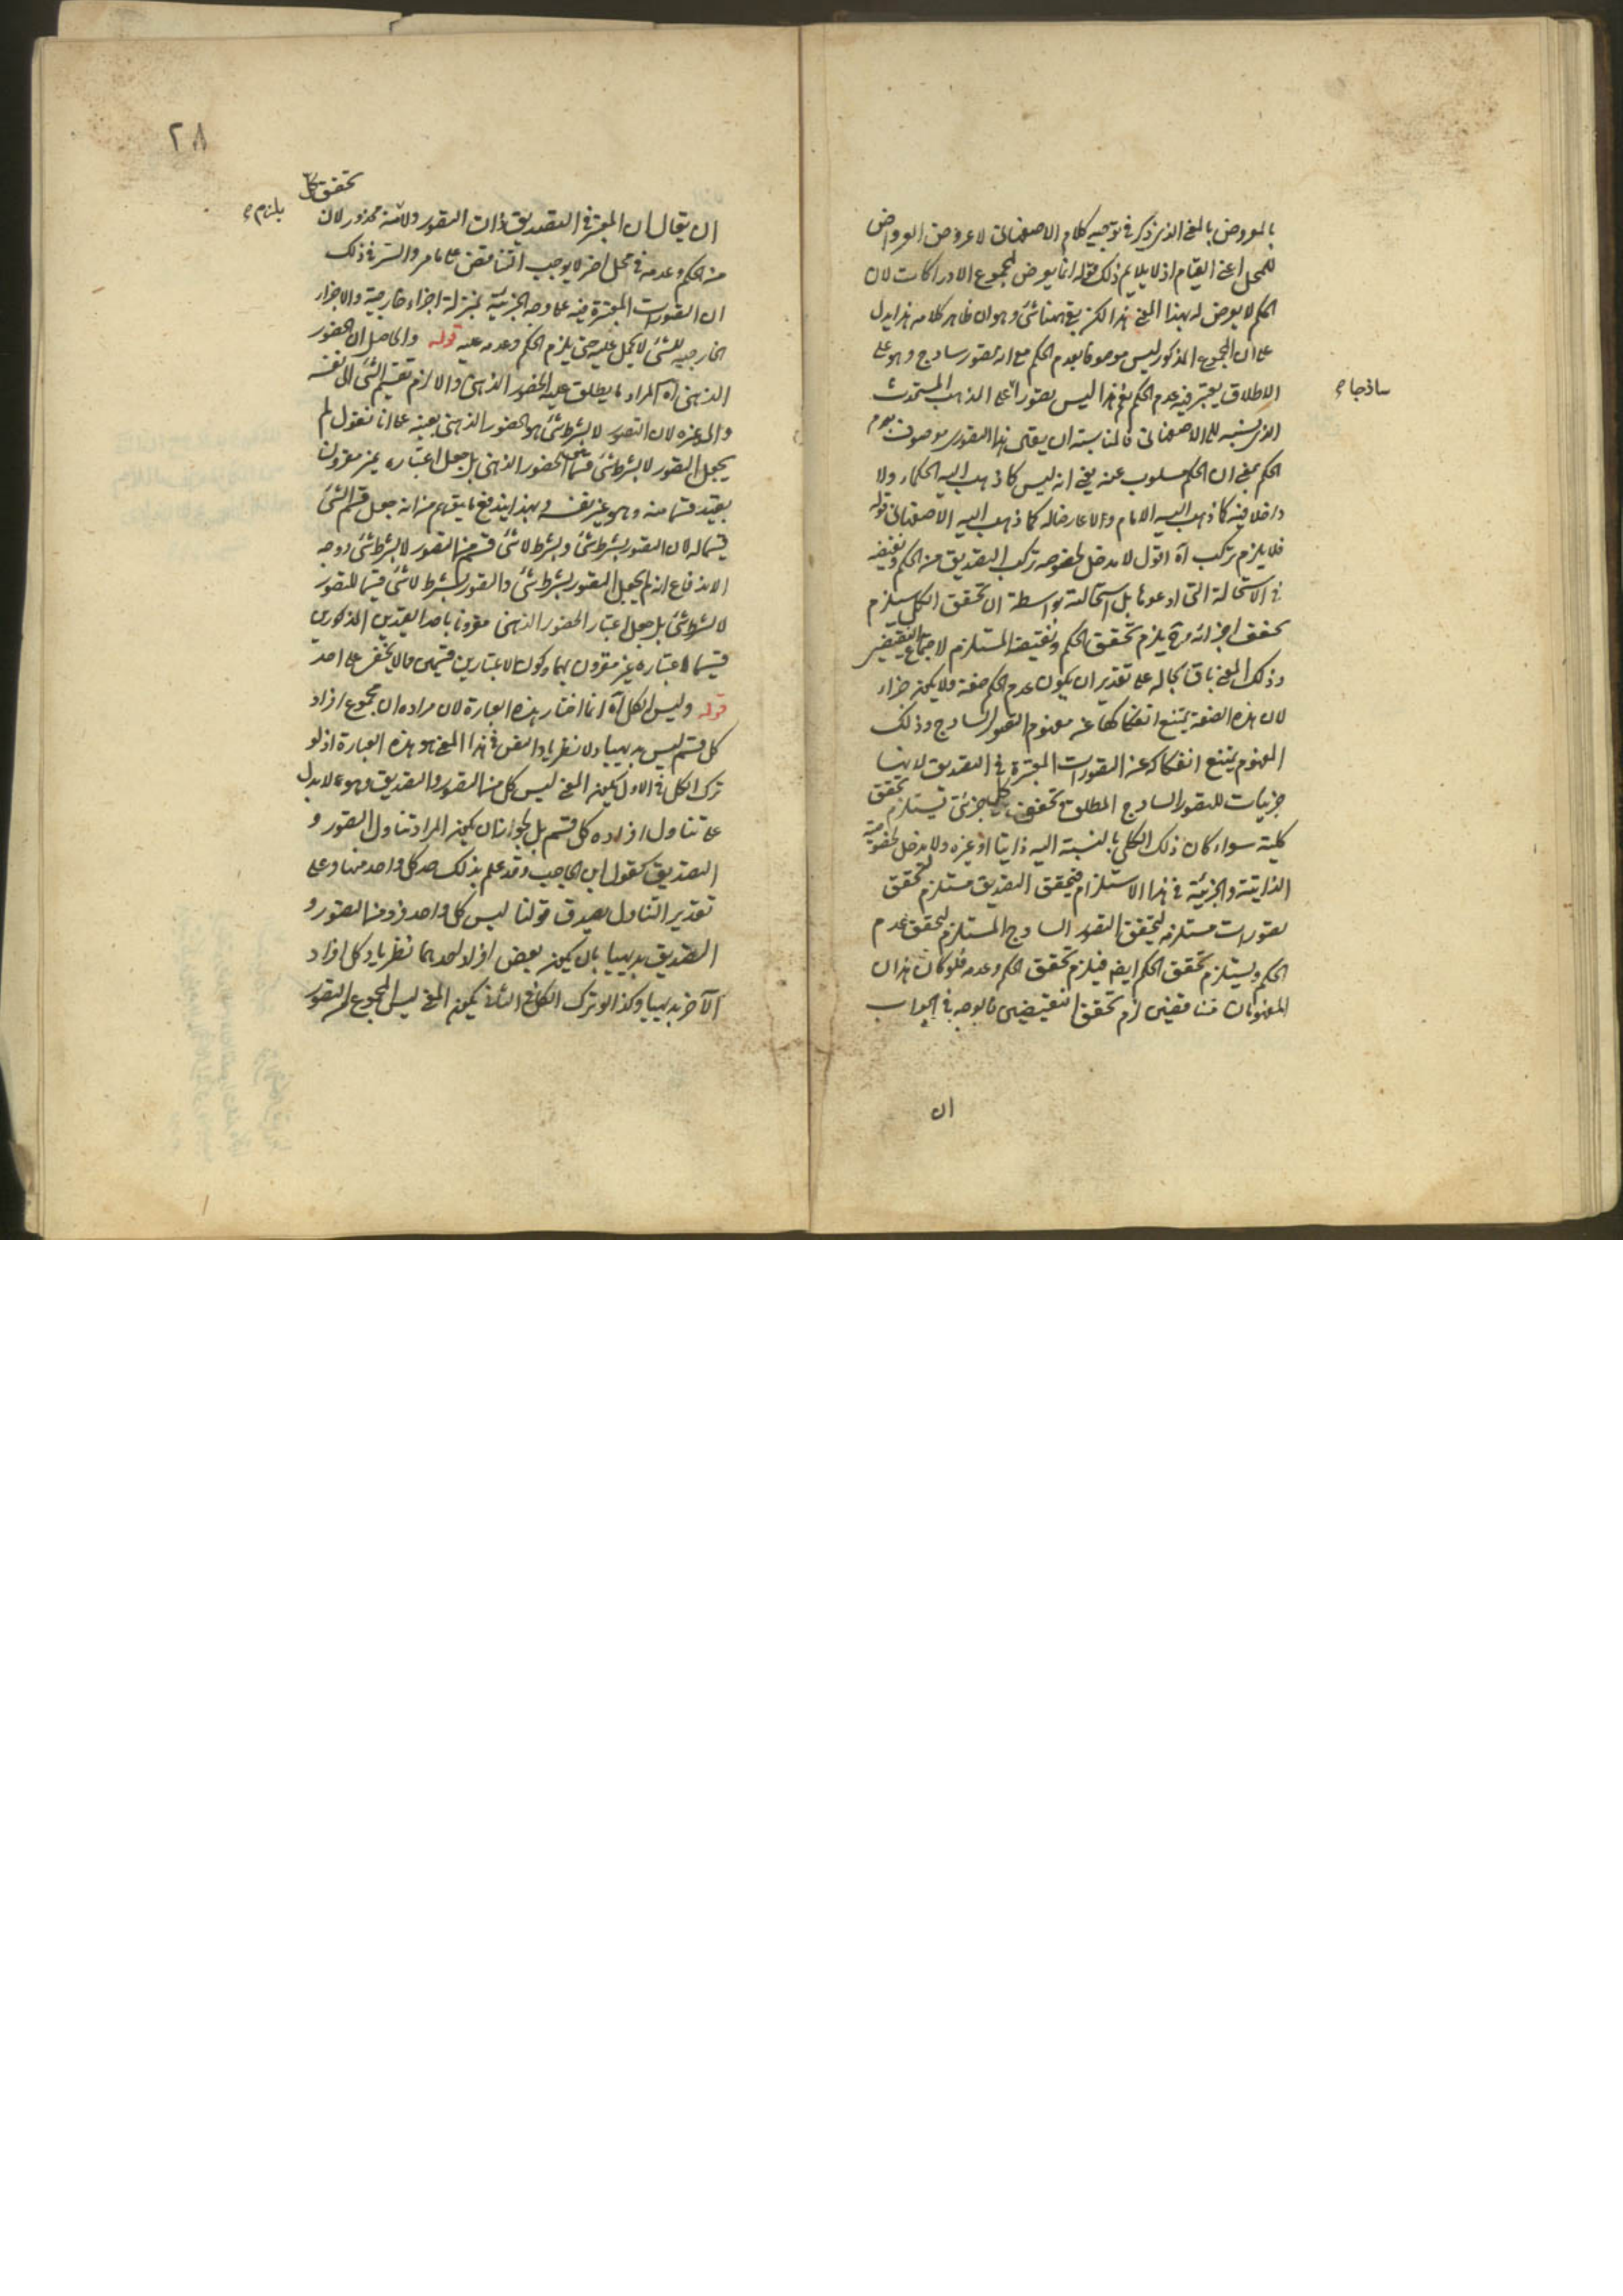 بالعروض بالمعنى الذى ذكر فى توجيه كلام الاصفهانى لا عروض العوارض
للمحل اعنى القيام اذ لا يلايم ذلك قوله انما يعرض لمجموع الادراكات لان
الحكم لا يعرض له بهذا المعنى هذا لكن بقى ههنا شئ وهو ان ظاهر كلامه هذا يدل
على ان المجموع المذكور ليس موصوفا بعدم الحكم مع انه تصور ساذج وهو على
الاطلاق يعتبر فيه عدم الحكم نعم هذا ليس تصورا على المذهب المستحدث
ساذجا
الذى نسبه الى الاصفهانى فالمناسبة ان يقال هذا التصور موصوف بعدم
الحكم بمعنى ان الحكم مسلوب عنه يعنى انه ليس كما ذهب اليه الحكماء ولا
داخلا فيه كما ذهب اليه الامام ولا عارضا له كما ذهب اليه الاصفهانى قوله
فلا يلزم تركب آه اقول لا مدخل لخصوصه تركب التصديق من الحكم ونقيضه
فى الاستحالة التى ادعوها بل استحالته بواسطة ان تحقق الكل يستلزم
تحقق اجزائه و ح يلزم تحقق الحكم ونقيضه المستلزم لاجتماع النقيضين
وذلك المعنى باق بحاله على تقدير ان يكون عدم الحكم صفة ولا يكون جزاء
لان هذه الصفة يمتنع انفكاكها عن مفهوم التصور الساذج وذلك
المفهوم يمتنع انفكاكه عن التصورات المعتبرة فى التصديق لانها
جزئيات للتصور الساذج المطلق و تحقق كل جزئى يستلزم تحقق
كليه سواء كان ذلك الكلى بالنسبة اليه ذاتيا او غيره ولا مدخل لخصوصية
الذاتية والجزئية فى هذا الاستلزام فتحقق التصديق مستلزم لتحقق
تصورات مستلزمة لتحقق التصور الساذج المستلزم لتحقق عدم
الحكم ويستلزم تحقق الحكم ايضا فيلزم تحقق الحكم وعدمه فلو كان هذان
المفهومان متناقضين لزم تحقق النقيضين فالوجه فى الجواب
ان
٢٨
تحقق كل
ان يقال ان المعتبر فى التصديق ذات التصور ولا ثمة محذور لان
يلزم
من الحكم وعدمه فى محل اخر لا يوجب التناقض على ما مر والسر فى ذلك
ان التصورات المعتبرة فيه على وجه الجزئية بمنزلة اجزاء خارجية والاجزاء
الخارجية للشئ لا تحمل عليه حتى يلزم الحكم وعدمه عليه قوله والحاصل ان الحضور
الذهنى آه المراد ما يطلق عليه الحضور الذهنى والا لزم تقسيم الشئ الى نفسه
والى غيره لان التصور لا بشرط شئ هو الحضور الذهنى بعينه على انا نقول لم
يجعل التصور لا بشرط شئ قسما من الحضور الذهنى بل جعل اعتباره غير مقرون
بقيد قسما منه وهو غير نفسه وبهذا يندفع ما يتوهم من انه جعل قسم الشئ
قسيما له لان التصور بشرط شئ وبشرط لا شئ قسم من التصور لا بشرط شئ ووجه
الاندفاع انه لم يجعل التصور بشرط شئ والتصور بشرط لا شئ قسيما للتصور
لا بشرط شئ بل جعل اعتبار الحضور الذهنى مقرونا باحد القيدين المذكورين
قسيما لاعتباره غير مقرون بهما وكون الاعتبارين قسيمين مما لا يخفى على احد
قوله وليس الكل آه انما اختار هذه العبارة لان مراده ان مجموع افراد
كل قسم ليس بديهيا ولا نظريا والنص فى هذا المعنى هو هذه العبارة اذ لو
ترك الكل فى الاول يكون المعنى ليس كل من التصور والتصديق وهو مما لا يدل
على تناول افراده كل قسم بل لجواز ان يكون المراد تناول التصور و
التصديق كقول ابن الحاجب وقد علم بذلك حد كل واحد منها وعلى
تقدير التناول يصدق قولنا ليس كل واحد فرد من التصور و
التصديق بديهيا بان يكون بعض افراد احدهما نظريا وكل افراد
الآخر بديهيا وكذا لو ترك الكل فى الثانى يكون المعنى ليس المجموع من التصور